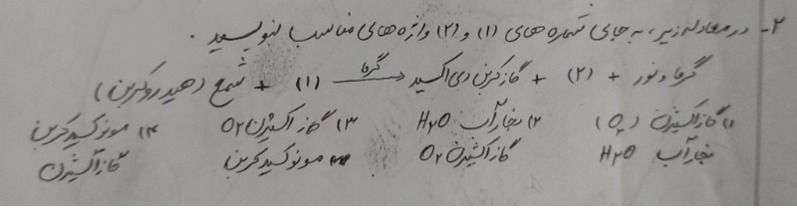 ۲- در معادله زیر، به جای شماره های (۱) و (۲) واژه های مناسب بنویسید.
شمع (هیدروکربن) + (۱) گرما→ گاز کربن دی اکسید + (۲) + گرما و نور
۱) گاز اکسیژن (O₂) ۲) بخار آب H₂O ۳) گاز اکسیژن O₂ ۴) مونوکسید کربن
بخار آب H₂O گاز اکسیژن O₂ مونوکسید کربن گاز اکسیژن